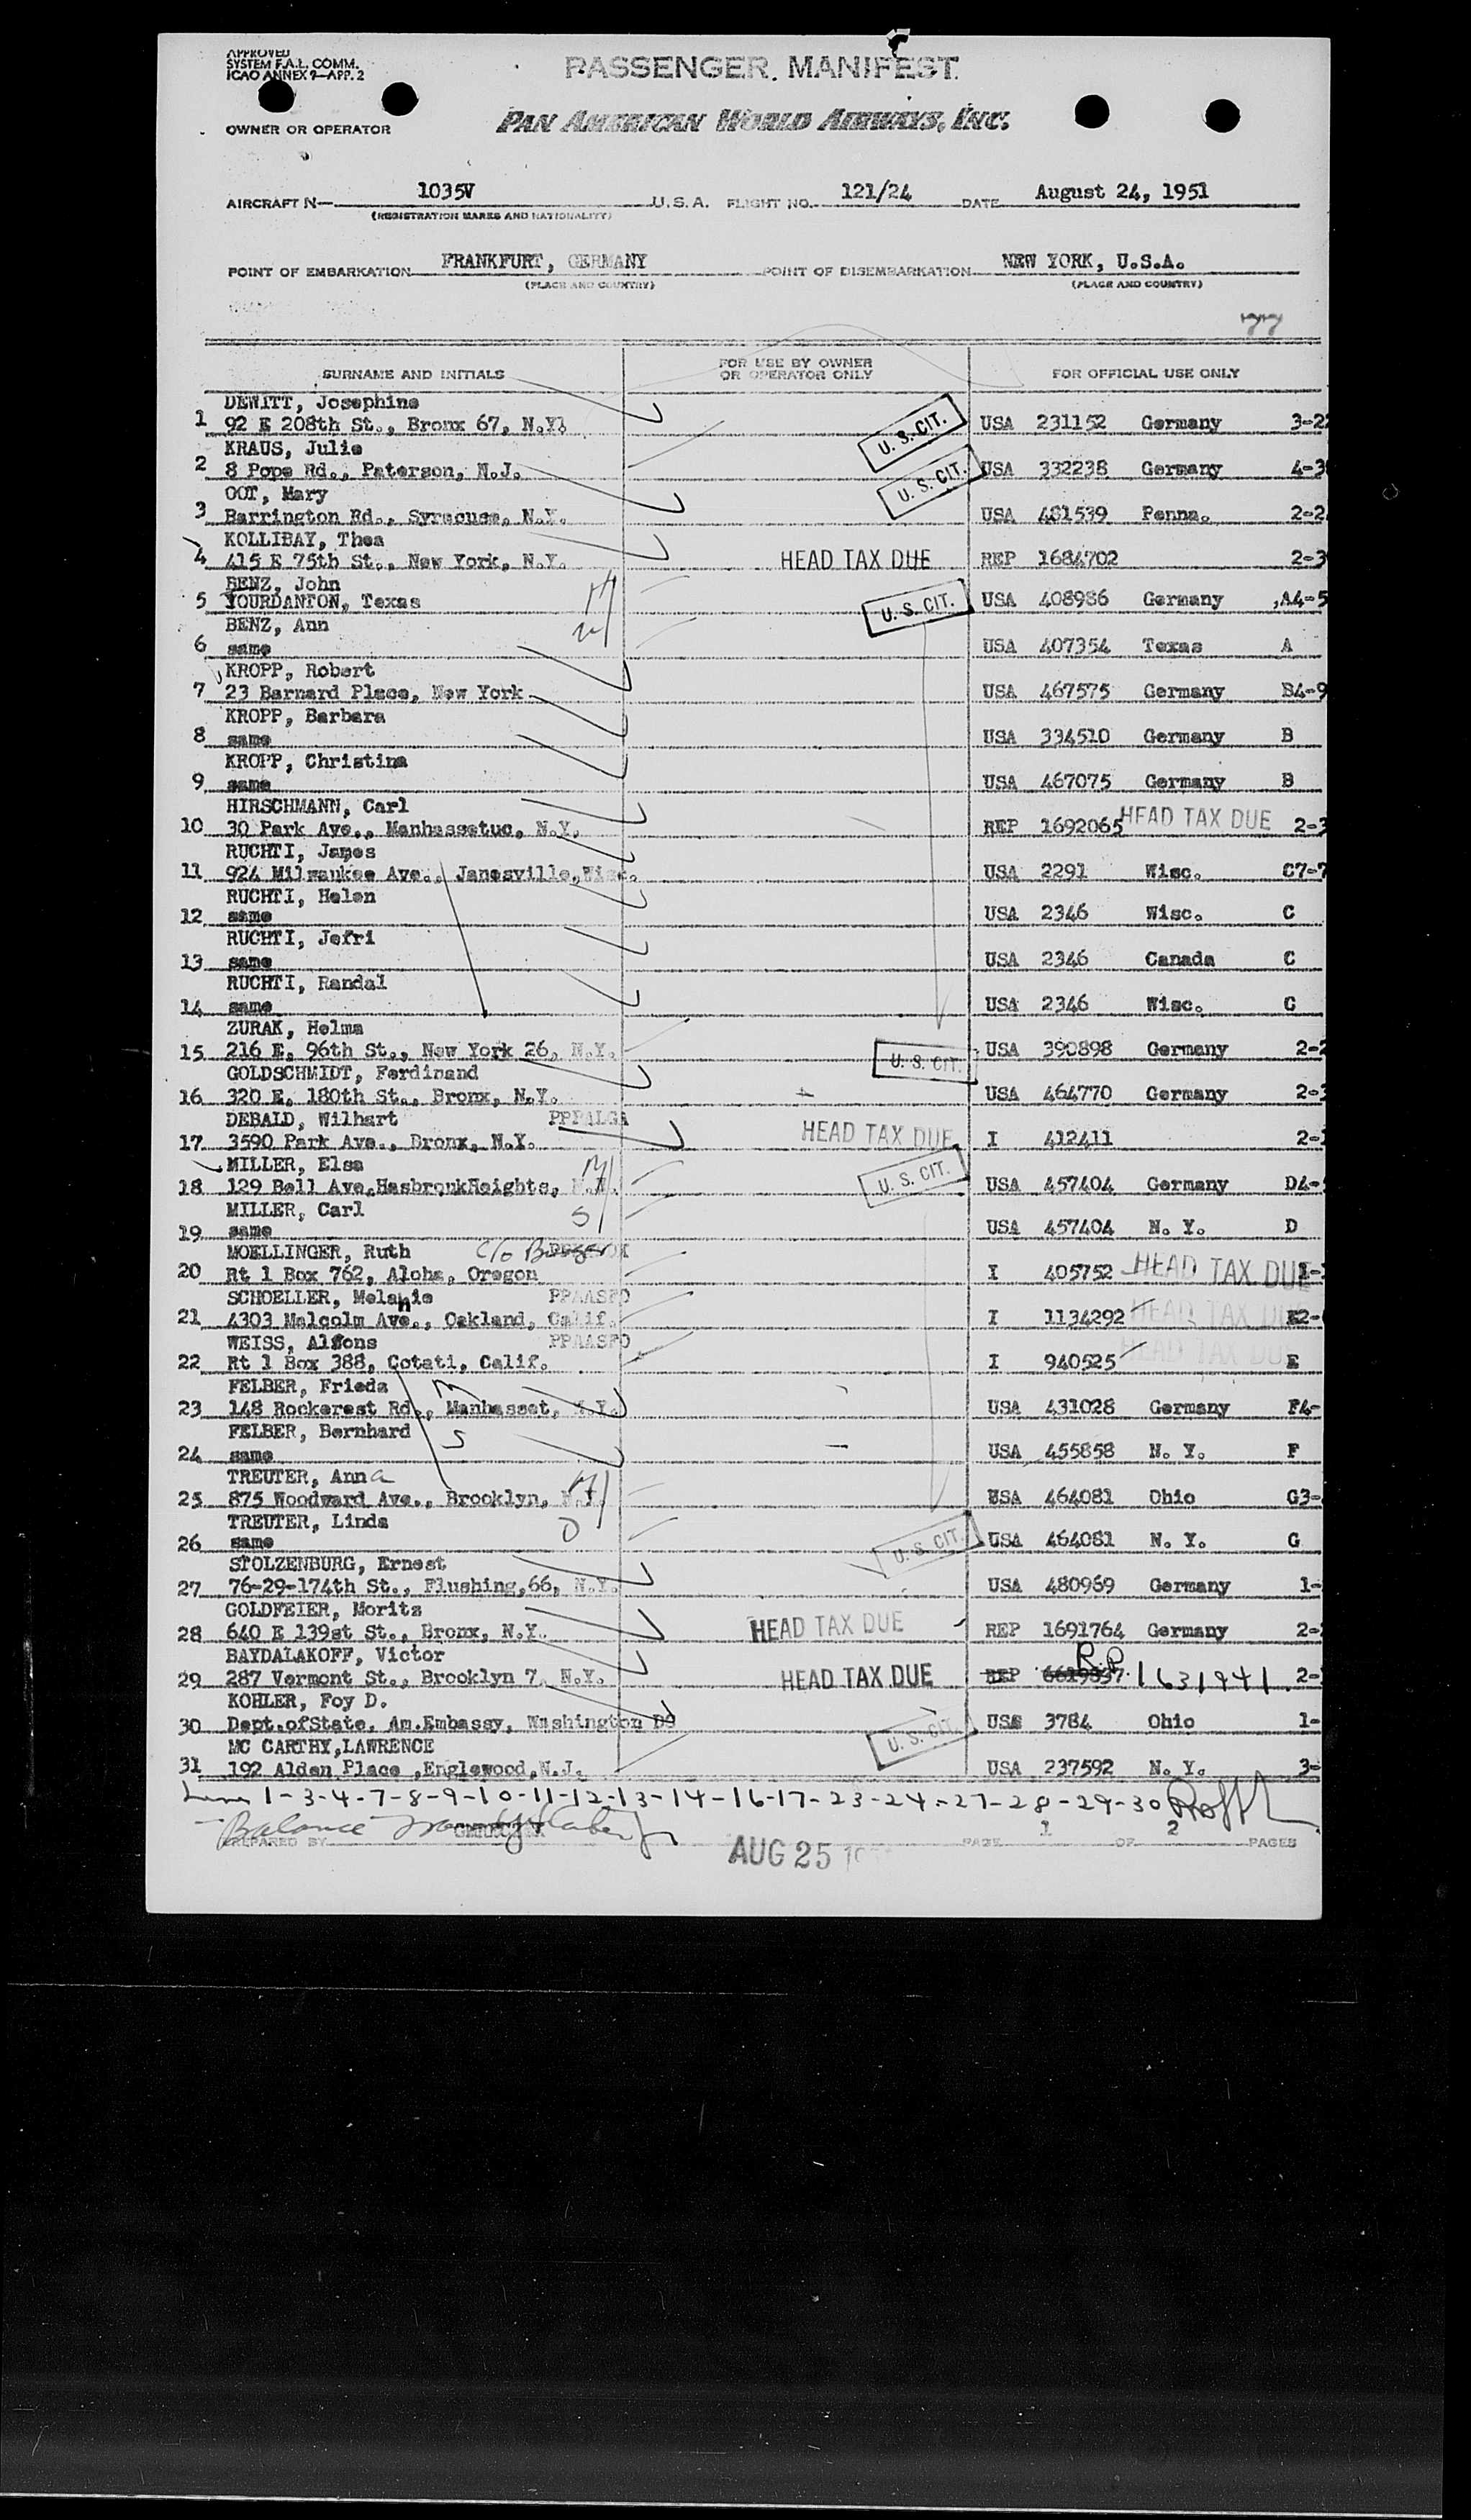 APPROVED
SYSTEM F.A.L. COMM.
ICAO ANNEX 9—APP. 2
PASSENGER MANIFEST
OWNER OR OPERATOR
PAN AMERICAN WORLD AIRWAYS, INC.
AIRCRAFT N— 1035V U.S.A. FLIGHT NO. 121/24 DATE August 24, 1951
(REGISTRATION MARKS AND NATIONALITY)
POINT OF EMBARKATION FRANKFURT, GERMANY POINT OF DISEMBARKATION NEW YORK, U.S.A.
(PLACE AND COUNTRY) (PLACE AND COUNTRY)
77
SURNAME AND INITIALS FOR USE BY OWNER OR OPERATOR ONLY FOR OFFICIAL USE ONLY
DEWITT, Josephine
1 92 E 208th St., Bronx 67, N.Y. U. S. CIT. USA 231152 Germany 3-22
KRAUS, Julie
2 8 Pope Rd., Paterson, N.J. U. S. CIT. USA 332238 Germany 4-3
OOT, Mary
3 Barrington Rd., Syracuse, N.Y. USA 481539 Penna. 2-2
KOLLIBAY, Thea
4 415 E 75th St., New York, N.Y. HEAD TAX DUE REP 1684702 2-3
BENZ, John M
5 YOURDANTON, Texas U. S. CIT. USA 408986 Germany A4-5
BENZ, Ann
6 same USA 407354 Texas A
KROPP, Robert
7 23 Barnard Place, New York USA 467575 Germany B4-9
KROPP, Barbara
8 same USA 334510 Germany B
KROPP, Christina
9 same USA 467075 Germany B
HIRSCHMANN, Carl
10 30 Park Ave., Manhassetuc, N.Y. REP 1692065 HEAD TAX DUE 2-3
RUCHTI, James
11 924 Milwaukee Ave., Janesville, Wisc. USA 2291 Wisc. C7-7
RUCHTI, Helen
12 same USA 2346 Wisc. C
RUCHTI, Jefri
13 same USA 2346 Canada C
RUCHTI, Randal
14 same USA 2346 Wisc. C
ZURAK, Helma
15 216 E. 96th St., New York 26, N.Y. U. S. CIT. USA 390898 Germany 2-2
GOLDSCHMIDT, Ferdinand
16 320 E. 180th St., Bronx, N.Y. USA 464770 Germany 2-3
DEBALD, Wilhart PPPALGA
17 3590 Park Ave., Bronx, N.Y. HEAD TAX DUE I 412411 2-
MILLER, Elsa M
18 129 Bell Ave.HasbroukHeights, N.J. U. S. CIT. USA 457404 Germany D4-
MILLER, Carl S
19 same USA 457404 N. Y. D
MOELLINGER, Ruth c/o
20 Rt 1 Box 762, Aloha, Oregon I 405752 HEAD TAX DUE 1-
SCHOELLER, Melanie PPAASFO
21 4303 Malcolm Ave., Oakland, Calif. I 1134292 HEAD TAX DUE E2-
WEISS, Alfons PPAASFO
22 Rt 1 Box 388, Cotati, Calif. I 940525 HEAD TAX DUE E
FELBER, Frieda M
23 148 Rockcrest Rd., Manhasset, N.Y. USA 431028 Germany F4-
FELBER, Bernhard S
24 same USA 455858 N. Y. F
TREUTER, Anna M
25 875 Woodward Ave., Brooklyn, N.Y. USA 464081 Ohio G3-
TREUTER, Linda D
26 same U. S. CIT. USA 464081 N. Y. G
STOLZENBURG, Ernest
27 76-29-174th St., Flushing,66, N.Y. USA 480969 Germany 1-
GOLDFEIER, Moritz
28 640 E 139st St., Bronx, N.Y. HEAD TAX DUE REP 1691764 Germany 2-
BAYDALAKOFF, Victor R.P.
29 287 Vermont St., Brooklyn 7, N.Y. HEAD TAX DUE REP 6619837 1631941 2-
KOHLER, Foy D.
30 Dept.ofState, Am.Embassy, Washington DC U. S. CIT. USA 3784 Ohio 1-
MC CARTHY,LAWRENCE
31 192 Alden Place ,Englewood,N.J. USA 237592 N. Y. 3-
1-3-4-7-8-9-10-11-12-13-14-16-17-23-24-27-28-29-30
Balance
PREPARED BY AUG 25 PAGE 1 OF 2 PAGES